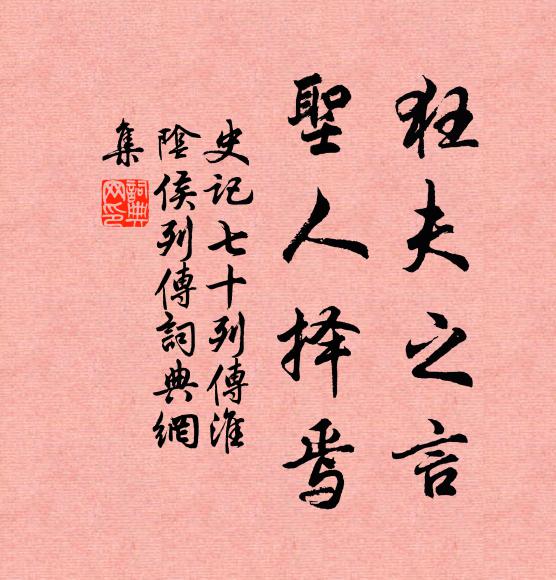 狂夫之言
聖人择焉
史记七十列傳淮
陰侯列傳詞典網
集
詞典
网印